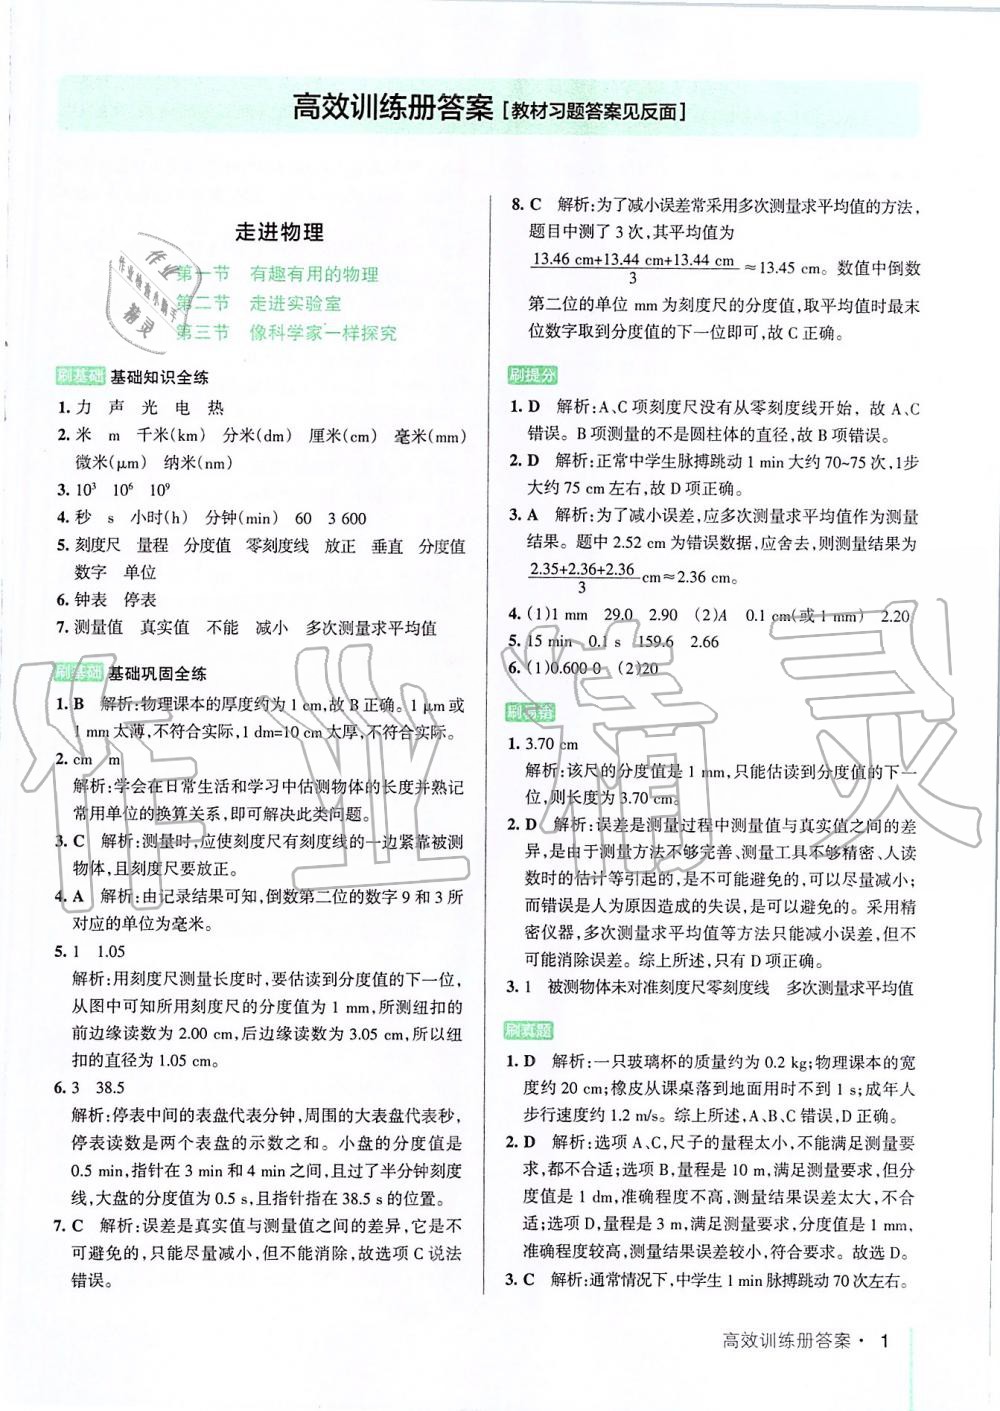 高效训练册答案[教材习题答案见反面]
走进物理
第一节 有趣有用的物理
第二节 走进实验室
第三节 像科学家一样探究
刷基础 基础知识全练
1. 力 声 光 电 热
2. 米 m 千米(km) 分米(dm) 厘米(cm) 毫米(mm)
微米(μm) 纳米(nm)
3. 10³ 10⁶ 10⁹
4. 秒 s 小时(h) 分钟(min) 60 3 600
5. 刻度尺 量程 分度值 零刻度线 放正 垂直 分度值
数字 单位
6. 钟表 停表
7. 测量值 真实值 不能 减小 多次测量求平均值
刷基础 基础巩固全练
1. B 解析:物理课本的厚度约为 1 cm,故 B 正确。1 μm或
1 mm 太薄,不符合实际,1 dm=10 cm 太厚,不符合实际。
2. cm m
解析:学会在日常生活和学习中估测物体的长度并熟记
常用单位的换算关系,即可解决此类问题。
3. C 解析:测量时,应使刻度尺有刻度线的一边紧靠被测
物体,且刻度尺要放正。
4. A 解析:由记录结果可知,倒数第二位的数字 9 和 3 所
对应的单位为毫米。
5. 1 1.05
解析:用刻度尺测量长度时,要估读到分度值的下一位,
从图中可知所用刻度尺的分度值为 1 mm,所测纽扣的
前边缘读数为 2.00 cm,后边缘读数为 3.05 cm,所以纽
扣的直径为 1.05 cm。
6. 3 38.5
解析:停表中间的表盘代表分钟,周围的大表盘代表秒,
停表读数是两个表盘的示数之和。小盘的分度值是
0.5 min,指针在 3 min 和 4 min 之间,且过了半分钟刻度
线,大盘的分度值为 0.5 s,且指针指在 38.5 s 的位置。
7. C 解析:误差是真实值与测量值之间的差异,它是不
可避免的,只能尽量减小,但不能消除,故选项 C 说法
错误。
8. C 解析:为了减小误差常采用多次测量求平均值的方法,
题目中测了 3 次,其平均值为
13.46 cm+13.44 cm+13.44 cm
3
≈13.45 cm。数值中倒数
第二位的单位 mm 为刻度尺的分度值,取平均值时最末
位数字取到分度值的下一位即可,故 C 正确。
刷提分
1. D 解析:A、C 项刻度尺没有从零刻度线开始,故 A、C
错误。B 项测量的不是圆柱体的直径,故 B 项错误。
2. D 解析:正常中学生脉搏跳动 1 min 大约 70~75 次,1步
大约 75 cm 左右,故 D 项正确。
3. A 解析:为了减小误差,应多次测量求平均值作为测量
结果。题中 2.52 cm 为错误数据,应舍去,则测量结果为
2.35+2.36+2.36
3
cm≈2.36 cm。
4. (1)1 mm 29.0 2.90 (2)A 0.1 cm(或 1 mm) 2.20
5. 15 min 0.1 s 159.6 2.66
6. (1)0.600 0 (2)20
刷易错
1. 3.70 cm
解析:该尺的分度值是 1 mm,只能估读到分度值的下一
位,则长度为 3.70 cm。
2. D 解析:误差是测量过程中测量值与真实值之间的差
异,是由于测量方法不够完善、测量工具不够精密、人读
数时的估计等引起的,是不可避免的,可以尽量减小;
而错误是人为原因造成的失误,是可以避免的。采用精
密仪器,多次测量求平均值等方法只能减小误差,但不
可能消除误差。综上所述,只有 D 项正确。
3. 1 被测物体未对准刻度尺零刻度线 多次测量求平均值
刷真题
1. D 解析:一只玻璃杯的质量约为 0.2 kg;物理课本的宽
度约 20 cm;橡皮从课桌落到地面用时不到 1 s;成年人
步行速度约 1.2 m/s。综上所述,A、B、C 错误,D 正确。
2. D 解析:选项 A、C,尺子的量程太小,不能满足测量要
求,都不合适;选项 B,量程是 10 m,满足测量要求,但分
度值是 1 dm,准确程度不高,测量结果误差太大,不合
适;选项 D,量程是 3 m,满足测量要求,分度值是 1 mm,
准确程度较高,测量结果误差较小,符合要求。故选 D。
3. C 解析:通常情况下,中学生 1 min 脉搏跳动 70 次左右。
高效训练册答案·1
作业精灵
作业
作业检查小助手
精灵